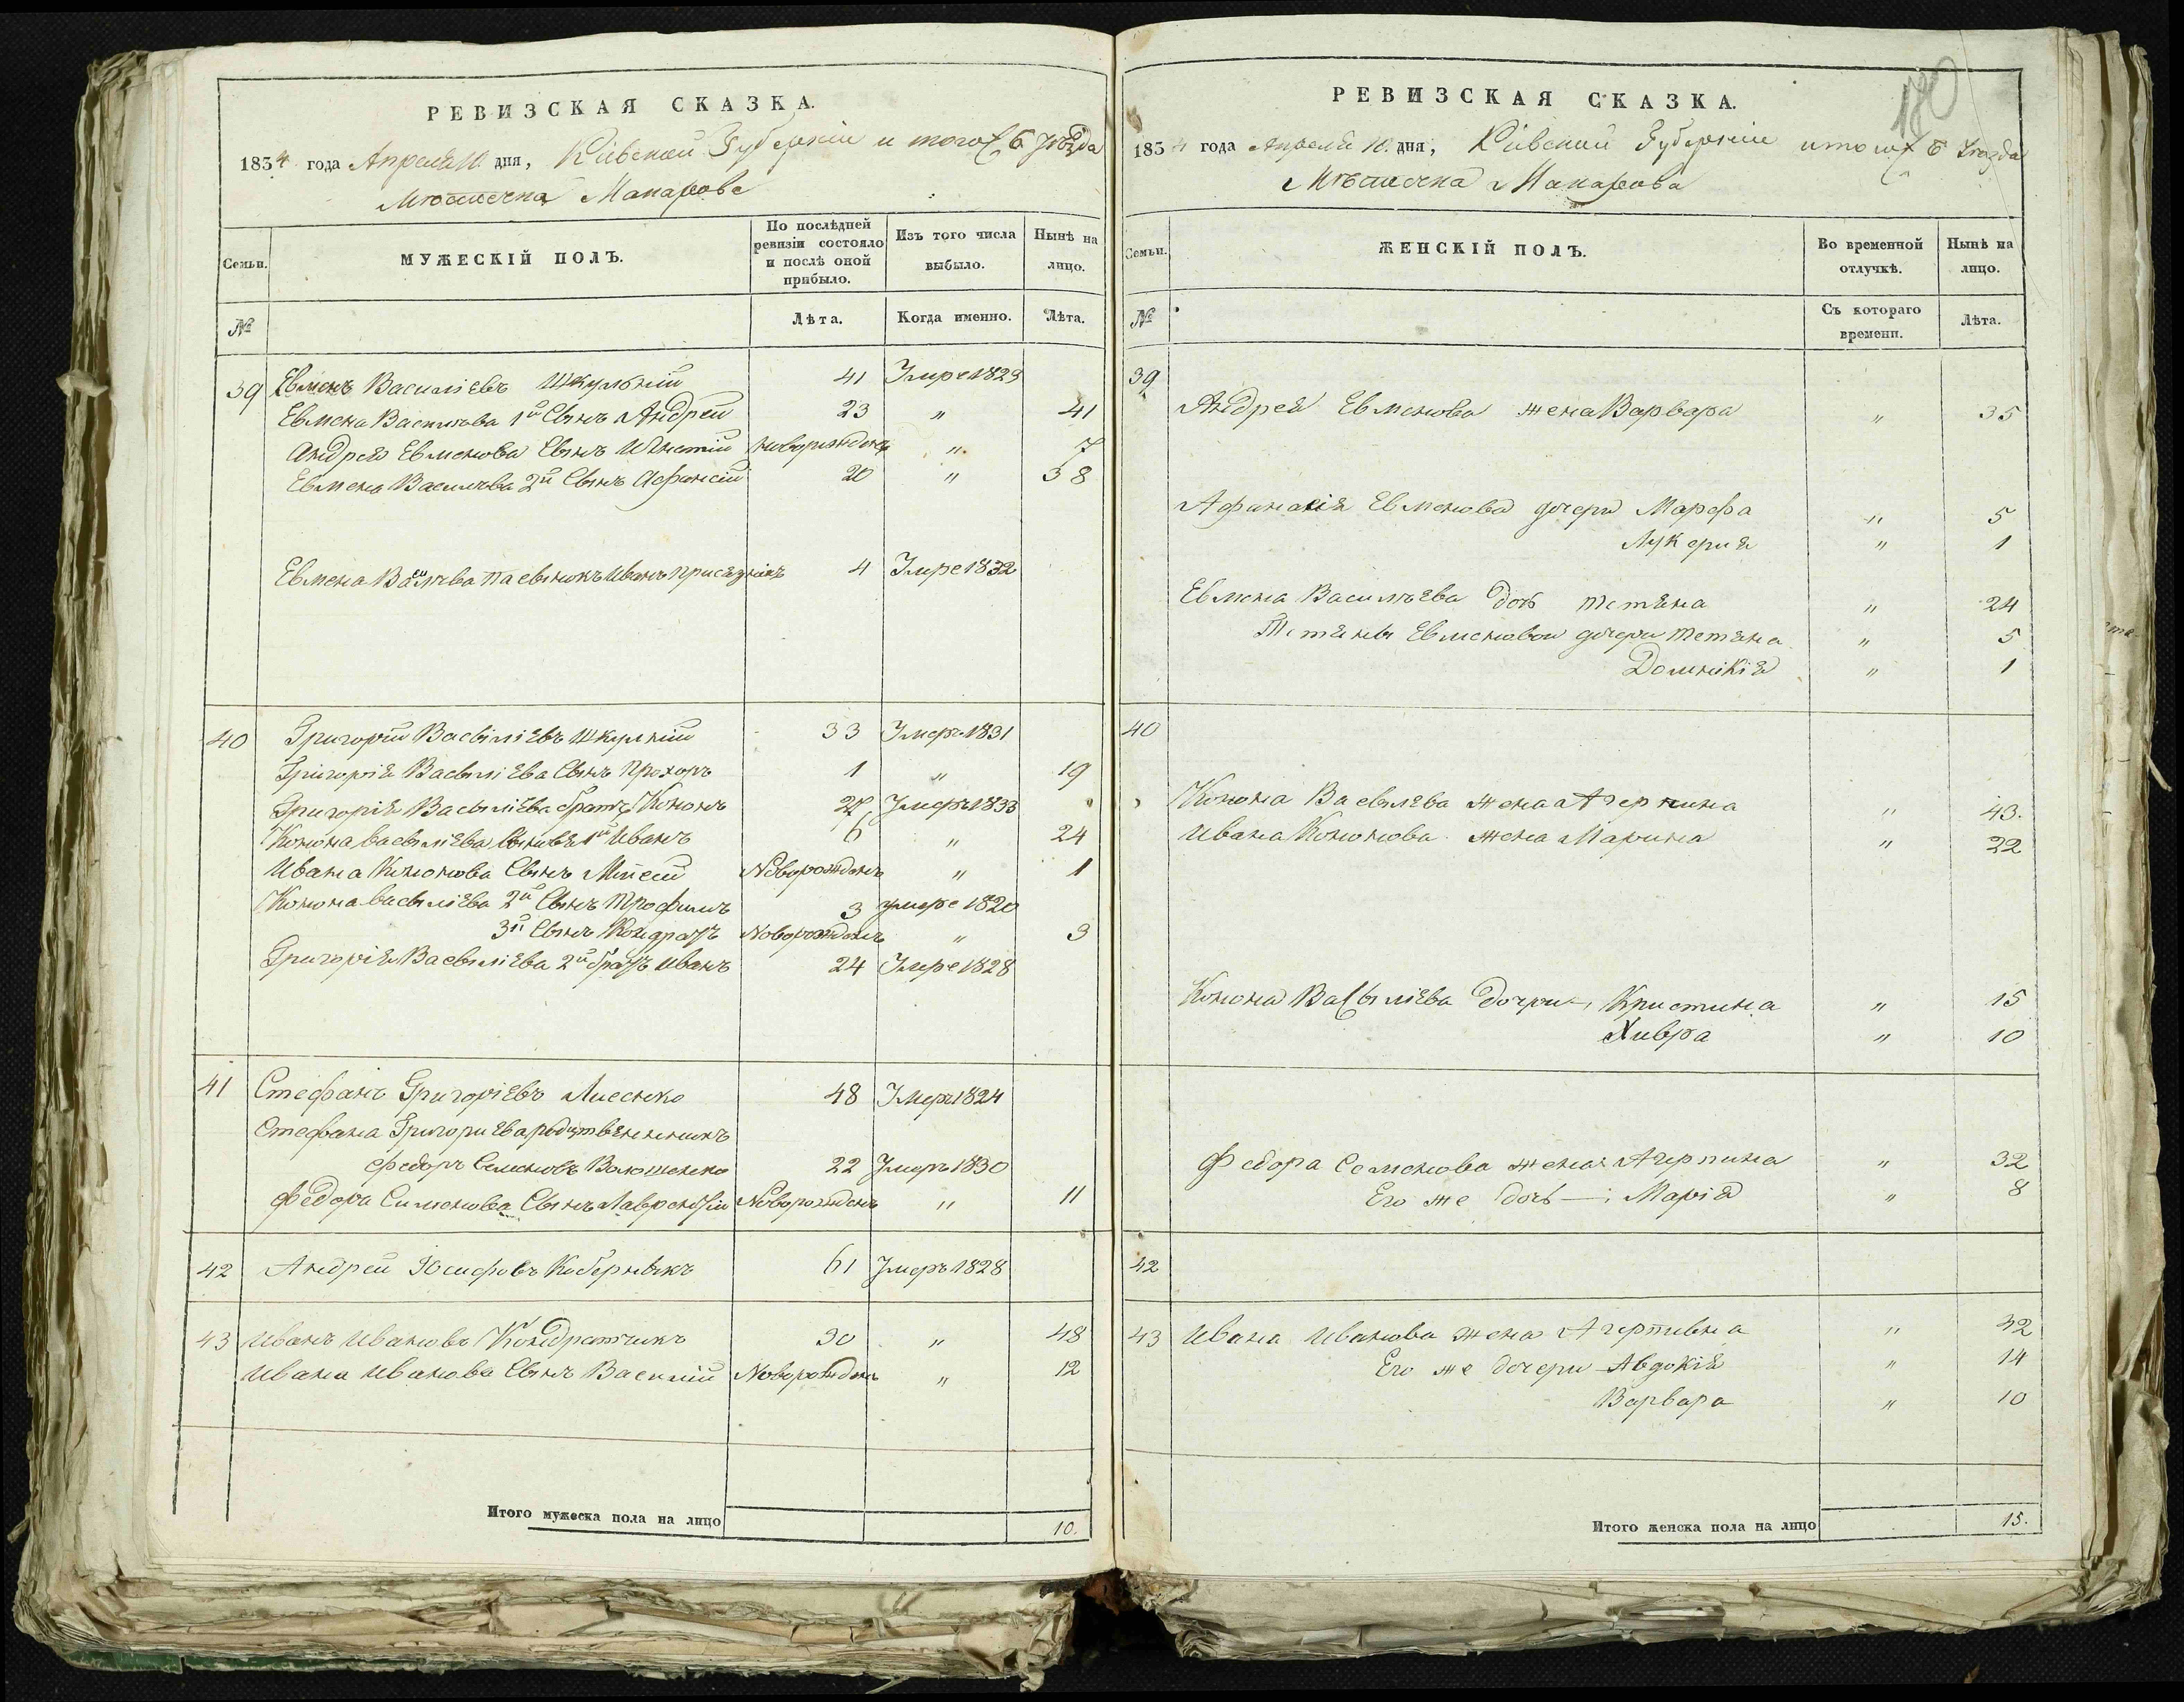 РЕВИЗСКАЯ СКАЗКА.
1834 года Апреля 10 дня, Кіевской Губерніи и тогожъ Уѣзда
Мѣстечка Макарова
Семьи. МУЖЕСКІЙ ПОЛЪ. По послѣдней ревизіи состояло и послѣ оной прибыло. Изъ того числа выбыло. Нынѣ на лицо.
№ Лѣта. Когда именно. Лѣта.
39 Евменъ Василіевъ Шкульній 41 Умре 1829
Евмена Василіева 1й Сынъ Андрей 23 " 41
Андрея Евменова Сынъ Игнатій новорожденъ " 7
Евмена Василіева 2й Сынъ Афанасій 20 " 38
Евмена Василіева пасынокъ Иванъ 4 Умре 1832
40 Григорій Васыліевъ Шкулній 33 Умеръ 1831
Григорія Васыліева Сынъ Прохоръ 1 " 19
Григорія Васыліева братъ Кононъ 27 Умеръ 1833
Конона васыліева сыновья 1й Иванъ 6 " 24
Ивана Кононова Сынъ Моисей Новорожденъ " 1
Конона васыліева 2й Сынъ Трофимъ 3 умре 1820
3й Сынъ Кондратъ Новорожденъ " 9
Григорія Васыліева 2й братъ Иванъ 24 Умре 1828
41 Стефанъ Григоріевъ 48 Умеръ 1824
Стефана Григориева родственникъ
Федоръ Семеновъ Волошенко 22 Умеръ 1830
Федора Сименова Сынъ Лаврентій Новорожденъ " 11
42 Андрей Юсифовъ Коберныкъ 61 Умеръ 1828
43 Иванъ Ивановъ Кондратчикъ 30 " 48
Ивана Иванова Сынъ Василій Новорожденъ " 12
Итого мужеска пола на лицо 10.
180
РЕВИЗСКАЯ СКАЗКА.
1834 года Апреля 10. дня, Кіевской Губерніи и тогожъ Уезда
Мѣстечка Макарова
Семьи. ЖЕНСКІЙ ПОЛЪ. Во временной отлучкѣ. Нынѣ на лицо.
№ Съ котораго времени. Лѣта.
39
Андрея Евменова жена Варвара " 35
Афанасія Евменова дочери Марфа " 5
Лукерия " 1
Евмена Василѣева дочь Тетяна " 24
Тетяны Евменовой дочери Тетяна " 5
Домникія " 1
40
Конона Васылева жена Агерпина " 43.
Ивана Кононова жена Марина " 22
Конона Васыліева дочери Кристина " 15
Хивра " 10
Федора Семенова жена Агерпина " 32
Его же дочь — Марія " 8
42
43 Ивана Иванова жена Агерпивна " 42
Его же дочери Авдокія " 14
Варвара " 10
Итого женска пола на лицо 15.